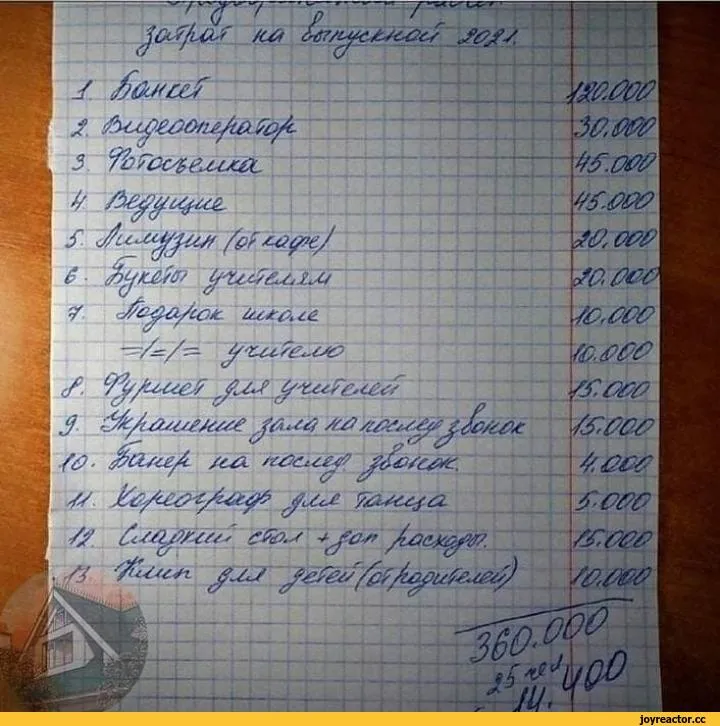 Предварительный расчет
затрат на выпускной 2021.
1. Банкет 120.000
2. Видеооператор 30.000
3. Фотосъемка 45.000
4. Ведущие 45.000
5. Лимузин (от кафе) 20.000
6. Букеты учителям 20.000
7. Подарок школе 10.000
=/=/= учителю 10.000
8. Фуршет для учителей 15.000
9. Украшение зала на послед звонок 15.000
10. Банер на послед. звонок. 4.000
11. Хореограф для танца 5.000
12. Сладкий стол + доп расходы. 15.000
13 Клип для детей (от родителей) 10.000
360.000
25 чел
14.400
joyreactor.cc